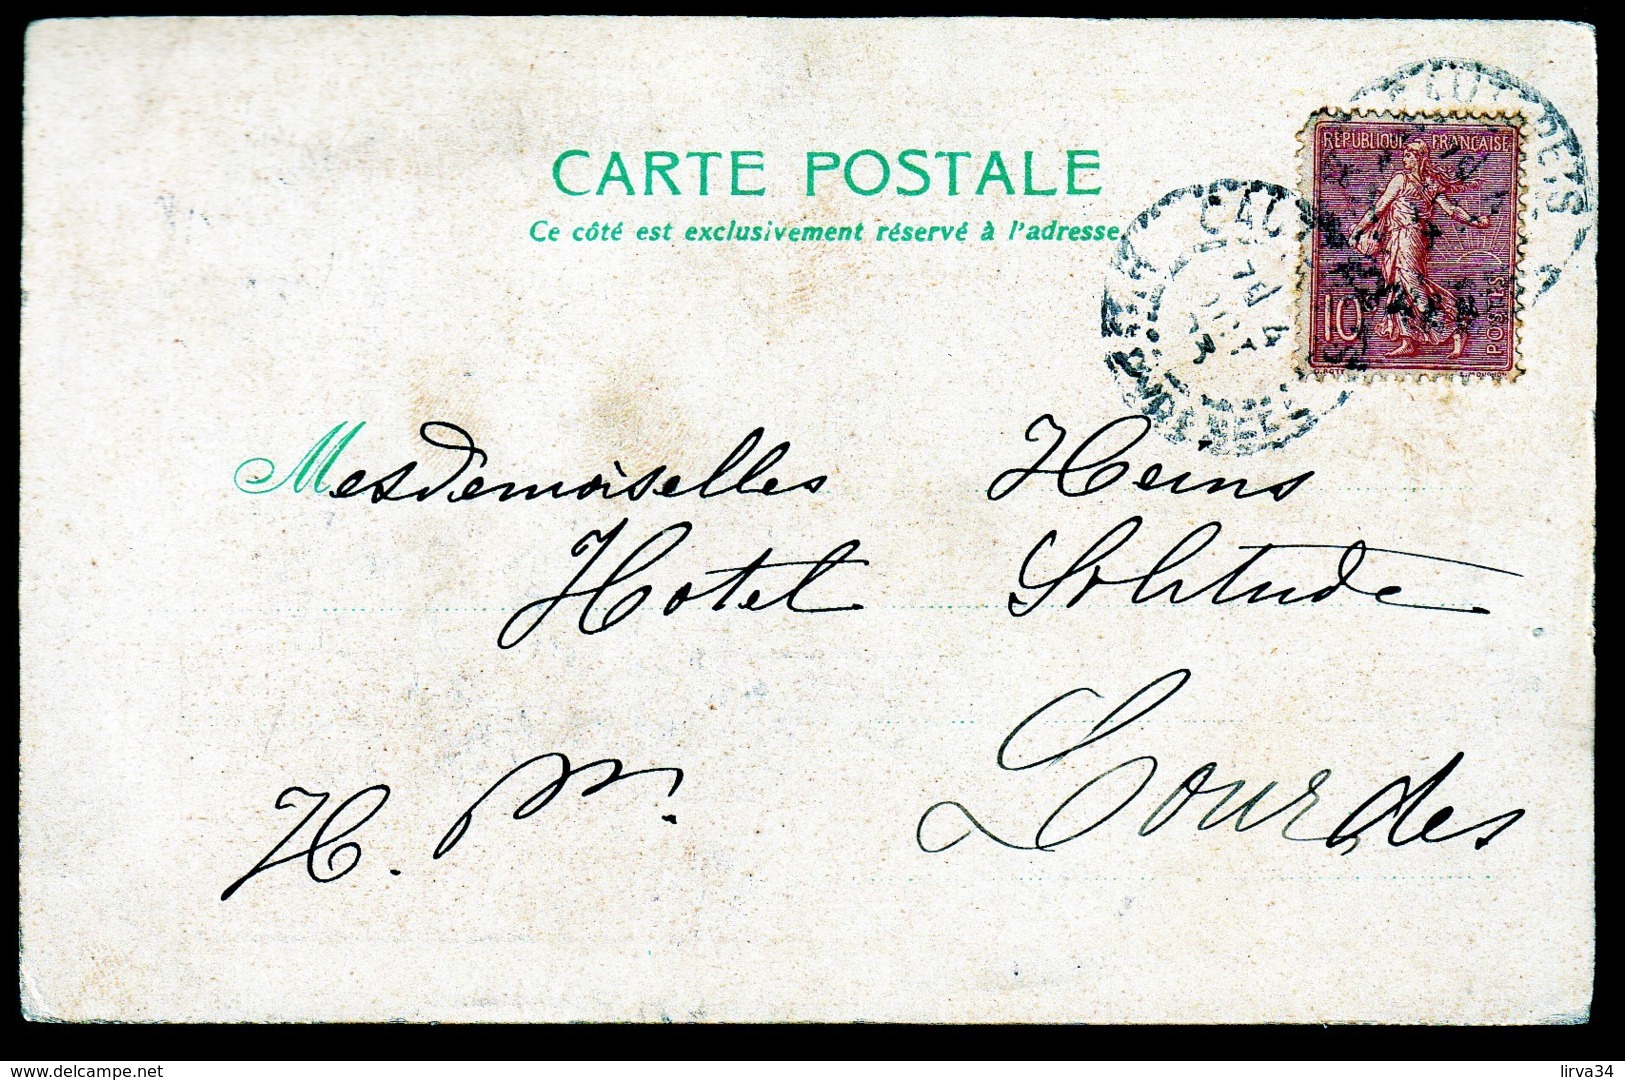 CARTE POSTALE
Ce côté est exclusivement réservé à l'adresse
RÉPUBLIQUE FRANÇAISE
10
POSTES
Mesdemoiselles Heins
Hotel Solitude
Lourdes
H. M.
www.delcampe.net
lirva34